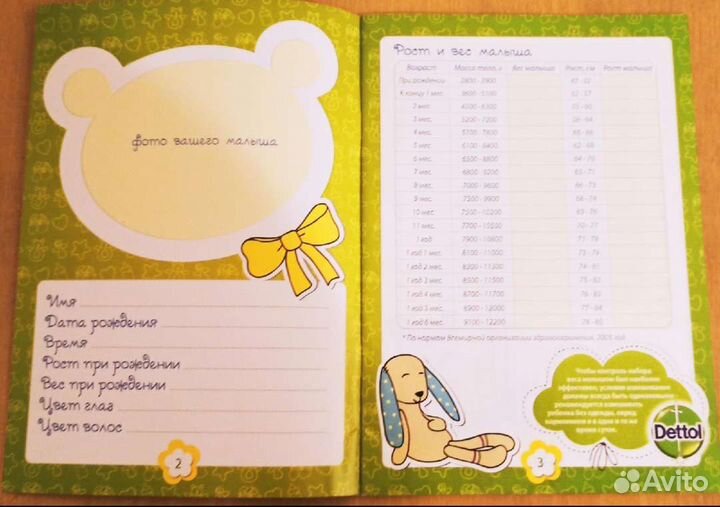 фото вашего малыша
Имя
Дата рождения
Время
Рост при рождении
Вес при рождении
Цвет глаз
Цвет волос
2
Рост и вес малыша
Возраст Масса тела, г Вес малыша Рост, см Рост малыша
При рождении 2800 - 3900
К концу 1 мес. 3600 - 5100
2 мес. 4500 - 6300
3 мес. 5200 - 7200
4 мес.
5 мес.
6 мес.
7 мес.
8 мес. 7000 - 9600
9 мес. 7300 - 9900
10 мес. 7500 - 10200
11 мес. 7700 - 10500
1 год 7900 - 10800
1 год 1 мес. 8100 - 11000
1 год 2 мес. 8200 - 11300
1 год 3 мес. 8500 - 11500
1 год 4 мес. 8700 - 11700
1 год 5 мес. 8900 - 12000
1 год 6 мес. 9100 - 12200
* По нормам Всемирной организации здравоохранения, 2005 год
Чтобы контроль набора
веса малышом был наиболее
эффективен, условия взвешивания
должны всегда быть одинаковыми:
рекомендуется взвешивать
ребенка без одежды, перед
кормлением и в одно и то же
время суток.
Dettol
3
Avito